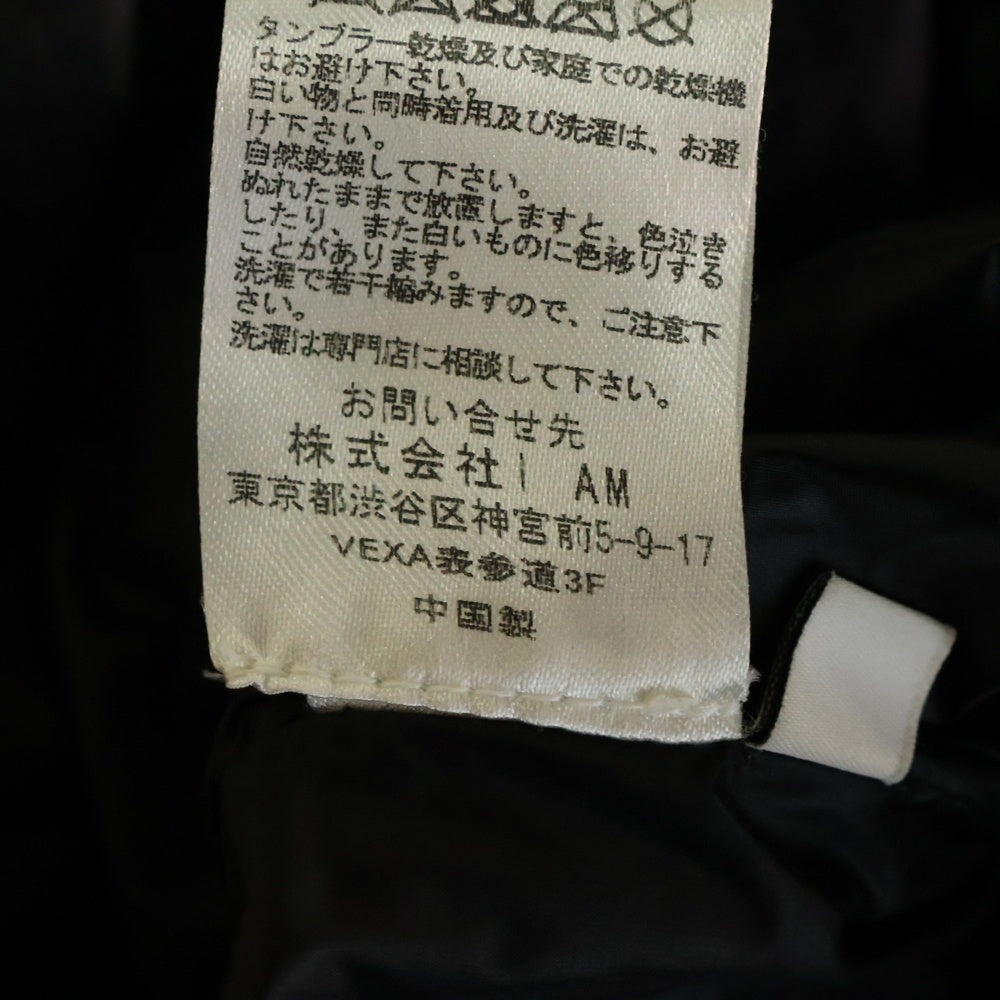 タンブラー乾燥及び家庭での乾燥機
はお避け下さい。
白い物と同時着用及び洗濯は、お避
け下さい。
自然乾燥して下さい。
ぬれたままで放置しますと、色泣き
したり、また白いものに色移りする
ことがあります。
洗濯で若干縮みますので、ご注意下
さい。
洗濯は専門店に相談して下さい。
お問い合せ先
株式会社I AM
東京都渋谷区神宮前5-9-17
VEXA表参道3F
中国製